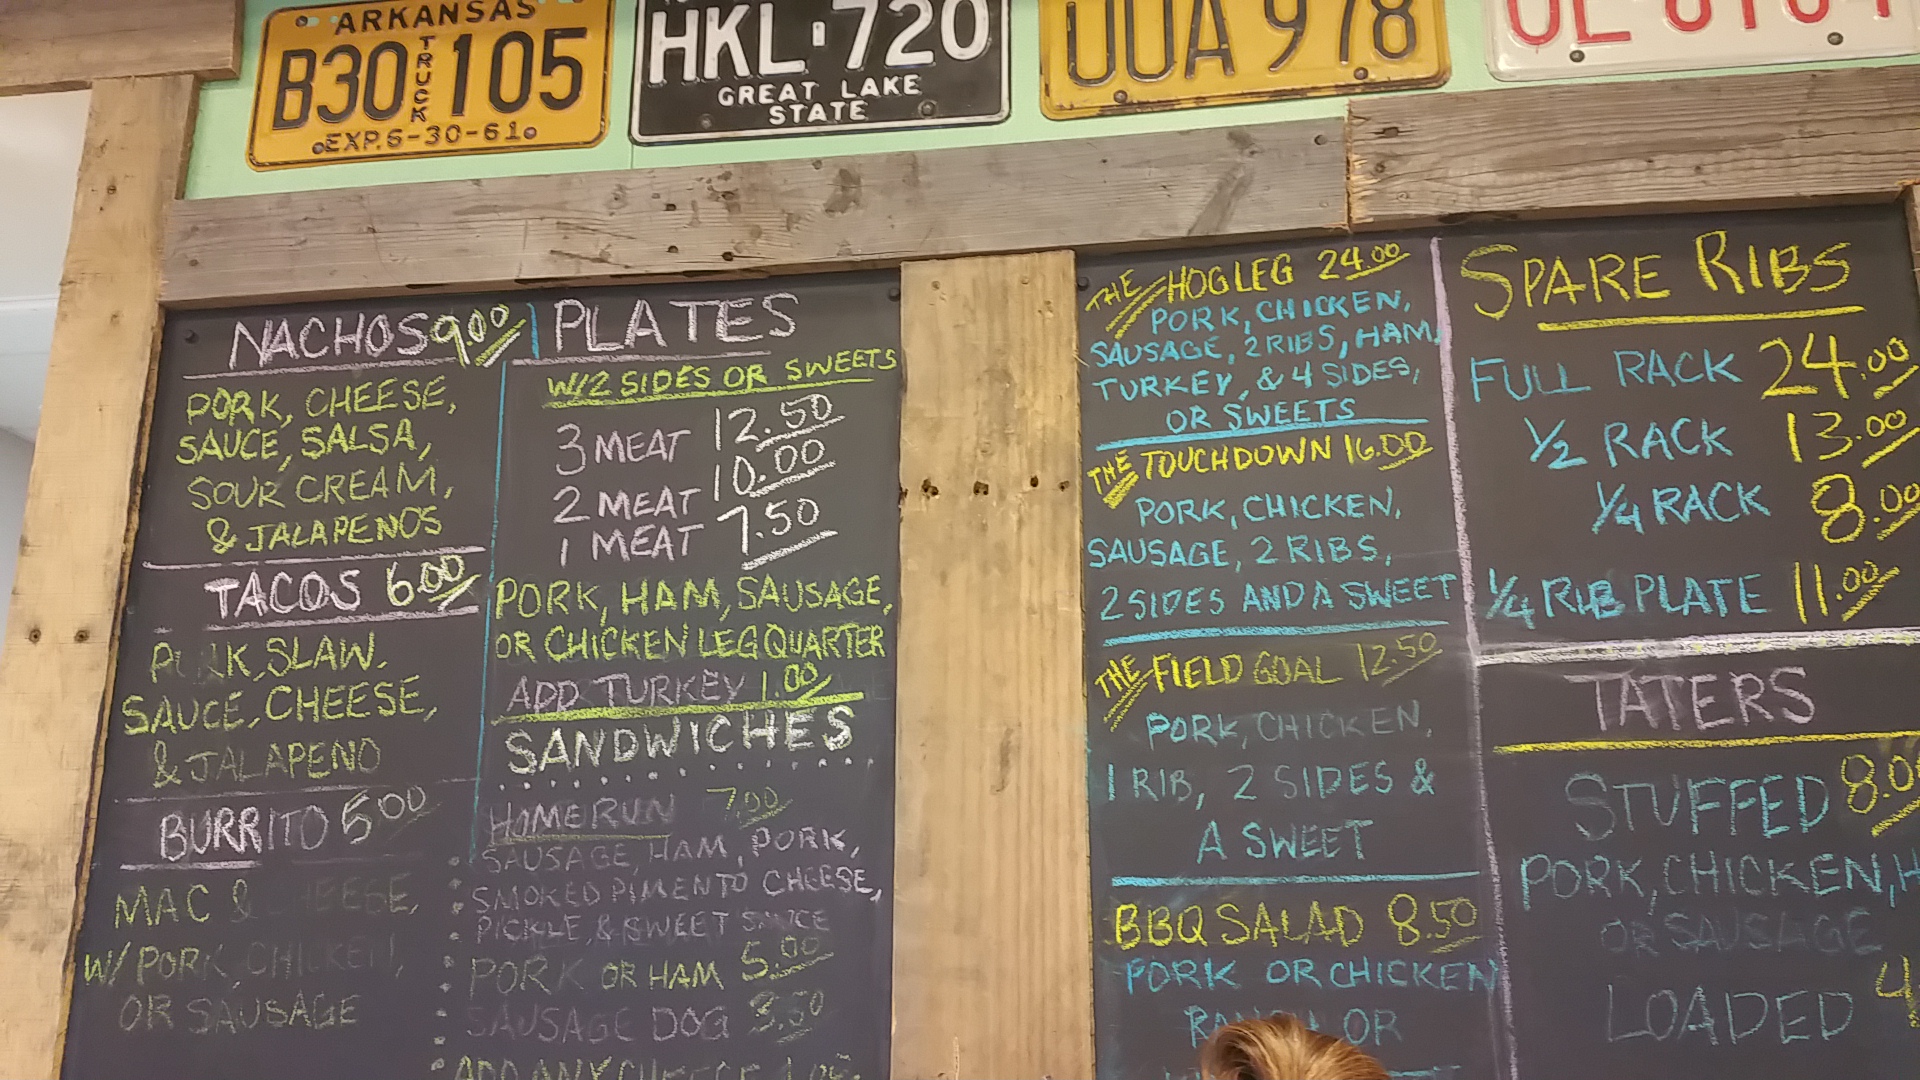 ARKANSAS
B30 TRUCK 105
EXP. 6-30-61
HKL·720
GREAT LAKE
STATE
UUA 978
NACHOS 9.00
PORK, CHEESE,
SAUCE, SALSA,
SOUR CREAM,
& JALAPENOS
TACOS 6.00
PORK, SLAW.
SAUCE, CHEESE,
& JALAPENO
BURRITO 5.00
MAC & CHEESE,
W/ PORK, CHICKEN,
OR SAUSAGE
PLATES
W/2 SIDES OR SWEETS
3 MEAT 12.50
2 MEAT 10.00
1 MEAT 7.50
PORK, HAM, SAUSAGE,
OR CHICKEN LEG QUARTER
ADD TURKEY 1.00
SANDWICHES
HOMERUN 7.00
SAUSAGE, HAM, PORK,
SMOKED PIMENTO CHEESE,
PICKLE, & SWEET SAUCE
PORK OR HAM 5.00
SAUSAGE DOG 3.50
ADD ANY CHEESE
THE HOGLEG 24.00
PORK, CHICKEN,
SAUSAGE, 2 RIBS, HAM,
TURKEY, & 4 SIDES,
OR SWEETS
THE TOUCHDOWN 16.00
PORK, CHICKEN,
SAUSAGE, 2 RIBS,
2 SIDES AND A SWEET
THE FIELD GOAL 12.50
PORK, CHICKEN,
1 RIB, 2 SIDES &
A SWEET
BBQ SALAD 8.50
PORK OR CHICKEN
RANCH OR
SPARE RIBS
FULL RACK 24.00
1/2 RACK 13.00
1/4 RACK 8.00
1/4 RIB PLATE 11.00
TATERS
STUFFED 8.0
PORK, CHICKEN, H
OR SAUSAGE
LOADED 4